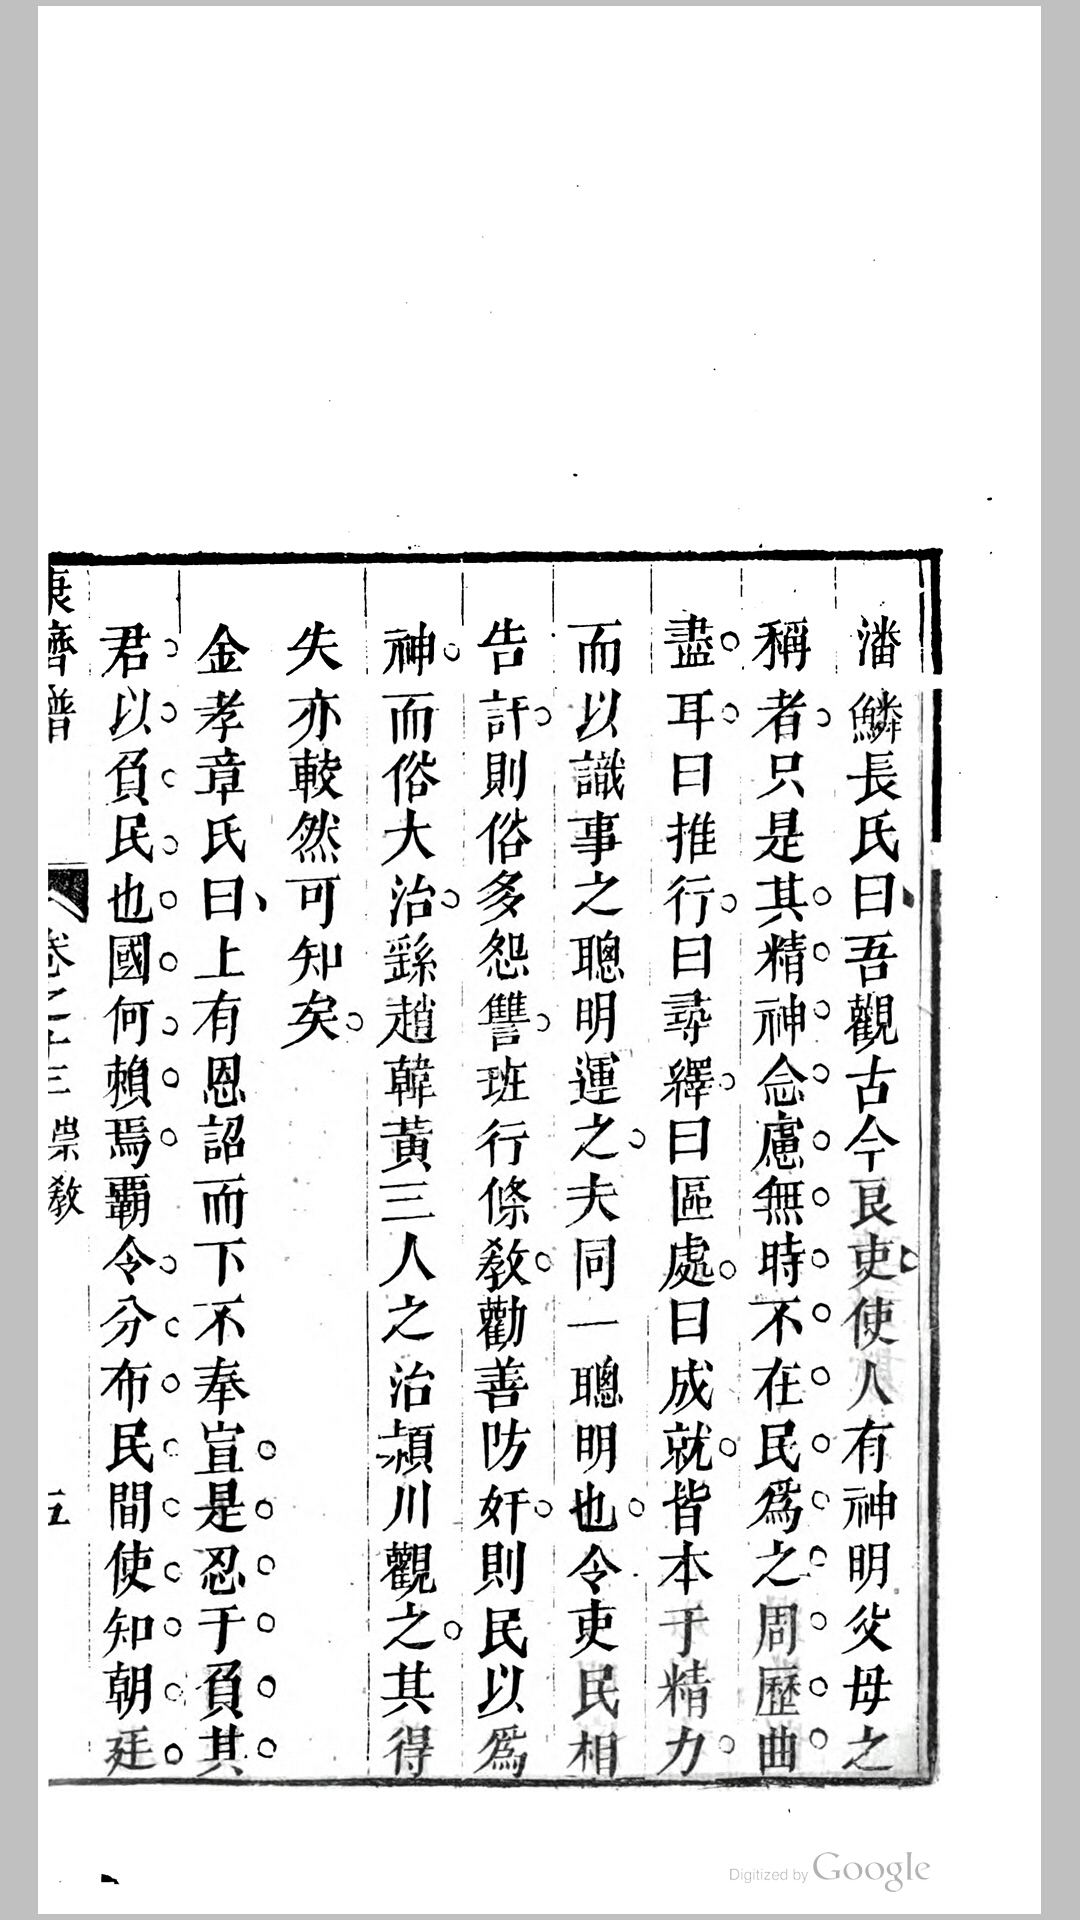 潘鱗長氏曰吾觀古今良吏使人有神明父母之
稱者只是其精神念慮無時不在民爲之周歷曲
盡耳曰推行曰尋繹曰區處曰成就皆本于精力
而以識事之聰明運之夫同一聰明也令吏民相
告訐則俗多怨讐班行條敎勸善防奸則民以爲
神而俗大治繇趙韓黃三人之治潁川觀之其得
失亦較然可知矣
金孝章氏曰上有恩詔而下不奉宣是忍于負其
君以負民也國何賴焉覇令分布民間使知朝廷
康濟譜
卷之十三 崇敎
五
Digitized by Google